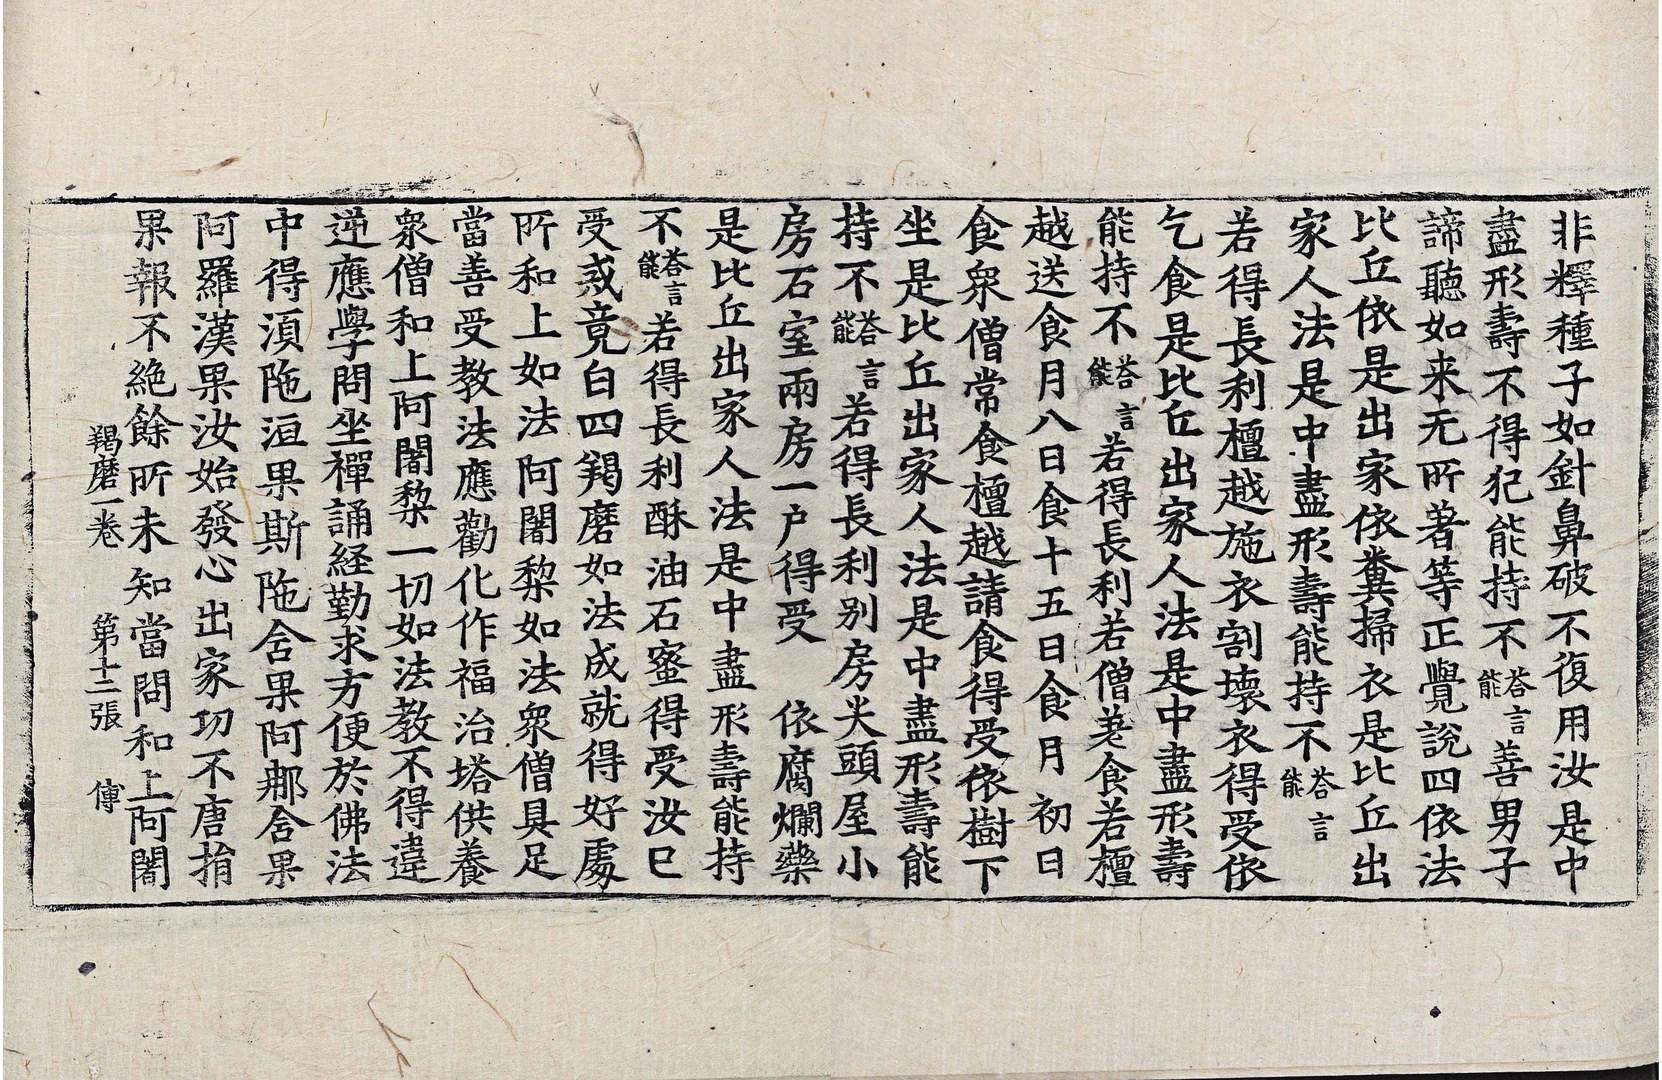 非釋種子如針鼻破不復用汝是中
盡形壽不得犯能持不荅言能善男子
諦聽如来无所著等正覺說四依法
比丘依是出家依糞掃衣是比丘出
家人法是中盡形壽能持不荅言能
若得長利檀越施衣割壞衣得受依
乞食是比丘出家人法是中盡形壽
能持不荅言能若得長利若僧差食若檀
越送食月八日食十五日食月初日
食衆僧常食檀越請食得受依樹下
坐是比丘出家人法是中盡形壽能
持不荅言能若得長利别房尖頭屋小
房石室兩房一户得受　依腐爛藥
是比丘出家人法是中盡形壽能持
不荅言能若得長利酥油石蜜得受汝已
受戒竟白四羯磨如法成就得好處
所和上如法阿闍梨如法衆僧具足
當善受教法應勸化作福治塔供養
衆僧和上阿闍梨一切如法教不得違
逆應學問坐禪誦経勤求方便於佛法
中得湏陁洹果斯陁含果阿那含果
阿羅漢果汝始發心出家功不唐捐
果報不絶餘所未知當問和上阿闍
羯磨一卷　第十二張　傳